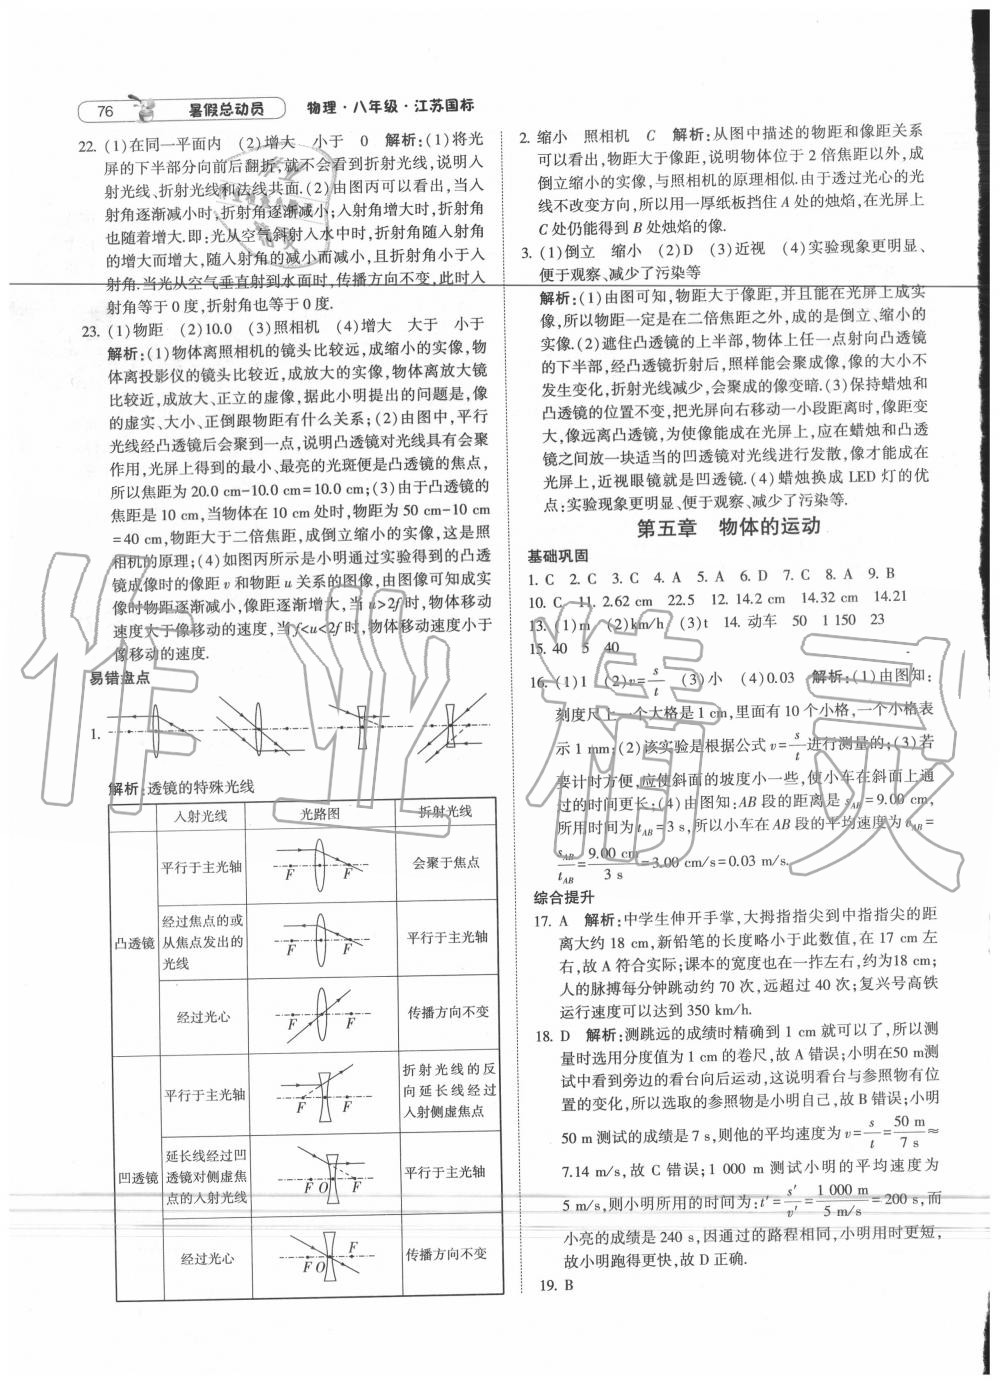 76 暑假总动员 物理·八年级·江苏国标
22. (1)在同一平面内 (2)增大 小于 0 解析:(1)将光
屏的下半部分向前后翻折,就不会看到折射光线,说明入
射光线、折射光线和法线共面.(2)由图丙可以看出,当入
射角逐渐减小时,折射角逐渐减小;入射角增大时,折射角
也随着增大.即:光从空气斜射入水中时,折射角随入射角
的增大而增大,随入射角的减小而减小,且折射角小于入
射角.当光从空气垂直射到水面时,传播方向不变,此时入
射角等于0度,折射角也等于0度.
23. (1)物距 (2)10.0 (3)照相机 (4)增大 大于 小于
解析:(1)物体离照相机的镜头比较远,成缩小的实像,物
体离投影仪的镜头比较近,成放大的实像,物体离放大镜
比较近,成放大、正立的虚像,据此小明提出的问题是,像
的虚实、大小、正倒跟物距有什么关系;(2)由图中,平行
光线经凸透镜后会聚到一点,说明凸透镜对光线具有会聚
作用,光屏上得到的最小、最亮的光斑便是凸透镜的焦点,
所以焦距为20.0 cm-10.0 cm=10.0 cm;(3)由于凸透镜的
焦距是10 cm,当物体在10 cm处时,物距为50 cm-10 cm
=40 cm,物距大于二倍焦距,成倒立缩小的实像,这是照
相机的原理;(4)如图丙所示是小明通过实验得到的凸透
镜成像时的像距v和物距u关系的图像,由图像可知成实
像时物距逐渐减小,像距逐渐增大,当u>2f时,物体移动
速度大于像移动的速度,当f<u<2f时,物体移动速度小于
像移动的速度.
易错盘点
1.
解析:透镜的特殊光线
入射光线 光路图 折射光线
凸透镜
平行于主光轴 F F 会聚于焦点
经过焦点的或
从焦点发出的
光线
F F 平行于主光轴
经过光心 F F 传播方向不变
凹透镜
平行于主光轴 F F
折射光线的反
向延长线经过
入射侧虚焦点
延长线经过凹
透镜对侧虚焦
点的入射光线
F O F 平行于主光轴
经过光心 F O F 传播方向不变
2. 缩小 照相机 C 解析:从图中描述的物距和像距关系
可以看出,物距大于像距,说明物体位于2倍焦距以外,成
倒立缩小的实像,与照相机的原理相似.由于透过光心的光
线不改变方向,所以用一厚纸板挡住A处的烛焰,在光屏上
C处仍能得到B处烛焰的像.
3. (1)倒立 缩小 (2)D (3)近视 (4)实验现象更明显、
便于观察、减少了污染等
解析:(1)由图可知,物距大于像距,并且能在光屏上成实
像,所以物距一定是在二倍焦距之外,成的是倒立、缩小的
实像.(2)遮住凸透镜的上半部,物体上任一点射向凸透镜
的下半部,经凸透镜折射后,照样能会聚成像,像的大小不
发生变化,折射光线减少,会聚成的像变暗.(3)保持蜡烛和
凸透镜的位置不变,把光屏向右移动一小段距离时,像距变
大,像远离凸透镜,为使像能成在光屏上,应在蜡烛和凸透
镜之间放一块适当的凹透镜对光线进行发散,像才能成在
光屏上,近视眼镜就是凹透镜.(4)蜡烛换成LED灯的优
点:实验现象更明显、便于观察、减少了污染等.
第五章 物体的运动
基础巩固
1. C 2. C 3. C 4. A 5. A 6. D 7. C 8. A 9. B
10. C 11. 2.62 cm 22.5 12. 14.2 cm 14.32 cm 14.21
13. (1)m (2)km/h (3)t 14. 动车 50 1 150 23
15. 40 5 40
16. (1)1 (2)v=s/t (3)小 (4)0.03 解析:(1)由图知:
刻度尺上一个大格是1 cm,里面有10个小格,一个小格表
示1 mm;(2)该实验是根据公式v=s/t进行测量的;(3)若
要计时方便,应使斜面的坡度小一些,使小车在斜面上通
过的时间更长;(4)由图知:AB段的距离是sAB=9.00 cm,
所用时间为tAB=3 s,所以小车在AB段的平均速度为vAB=
sAB/tAB=9.00 cm/3 s=3.00 cm/s=0.03 m/s.
综合提升
17. A 解析:中学生伸开手掌,大拇指指尖到中指指尖的距
离大约18 cm,新铅笔的长度略小于此数值,在17 cm左
右,故A符合实际;课本的宽度也在一拃左右,约为18 cm;
人的脉搏每分钟跳动约70次,远超过40次;复兴号高铁
运行速度可以达到350 km/h.
18. D 解析:测跳远的成绩时精确到1 cm就可以了,所以测
量时选用分度值为1 cm的卷尺,故A错误;小明在50 m测
试中看到旁边的看台向后运动,这说明看台与参照物有位
置的变化,所以选取的参照物是小明自己,故B错误;小明
50 m测试的成绩是7 s,则他的平均速度为v=s/t=50 m/7 s≈
7.14 m/s,故C错误;1 000 m测试小明的平均速度为
5 m/s,则小明所用的时间为:t′=s′/v′=1 000 m/5 m/s=200 s,而
小亮的成绩是240 s,因通过的路程相同,小明用时更短,
故小明跑得更快,故D正确.
19. B
作业精灵